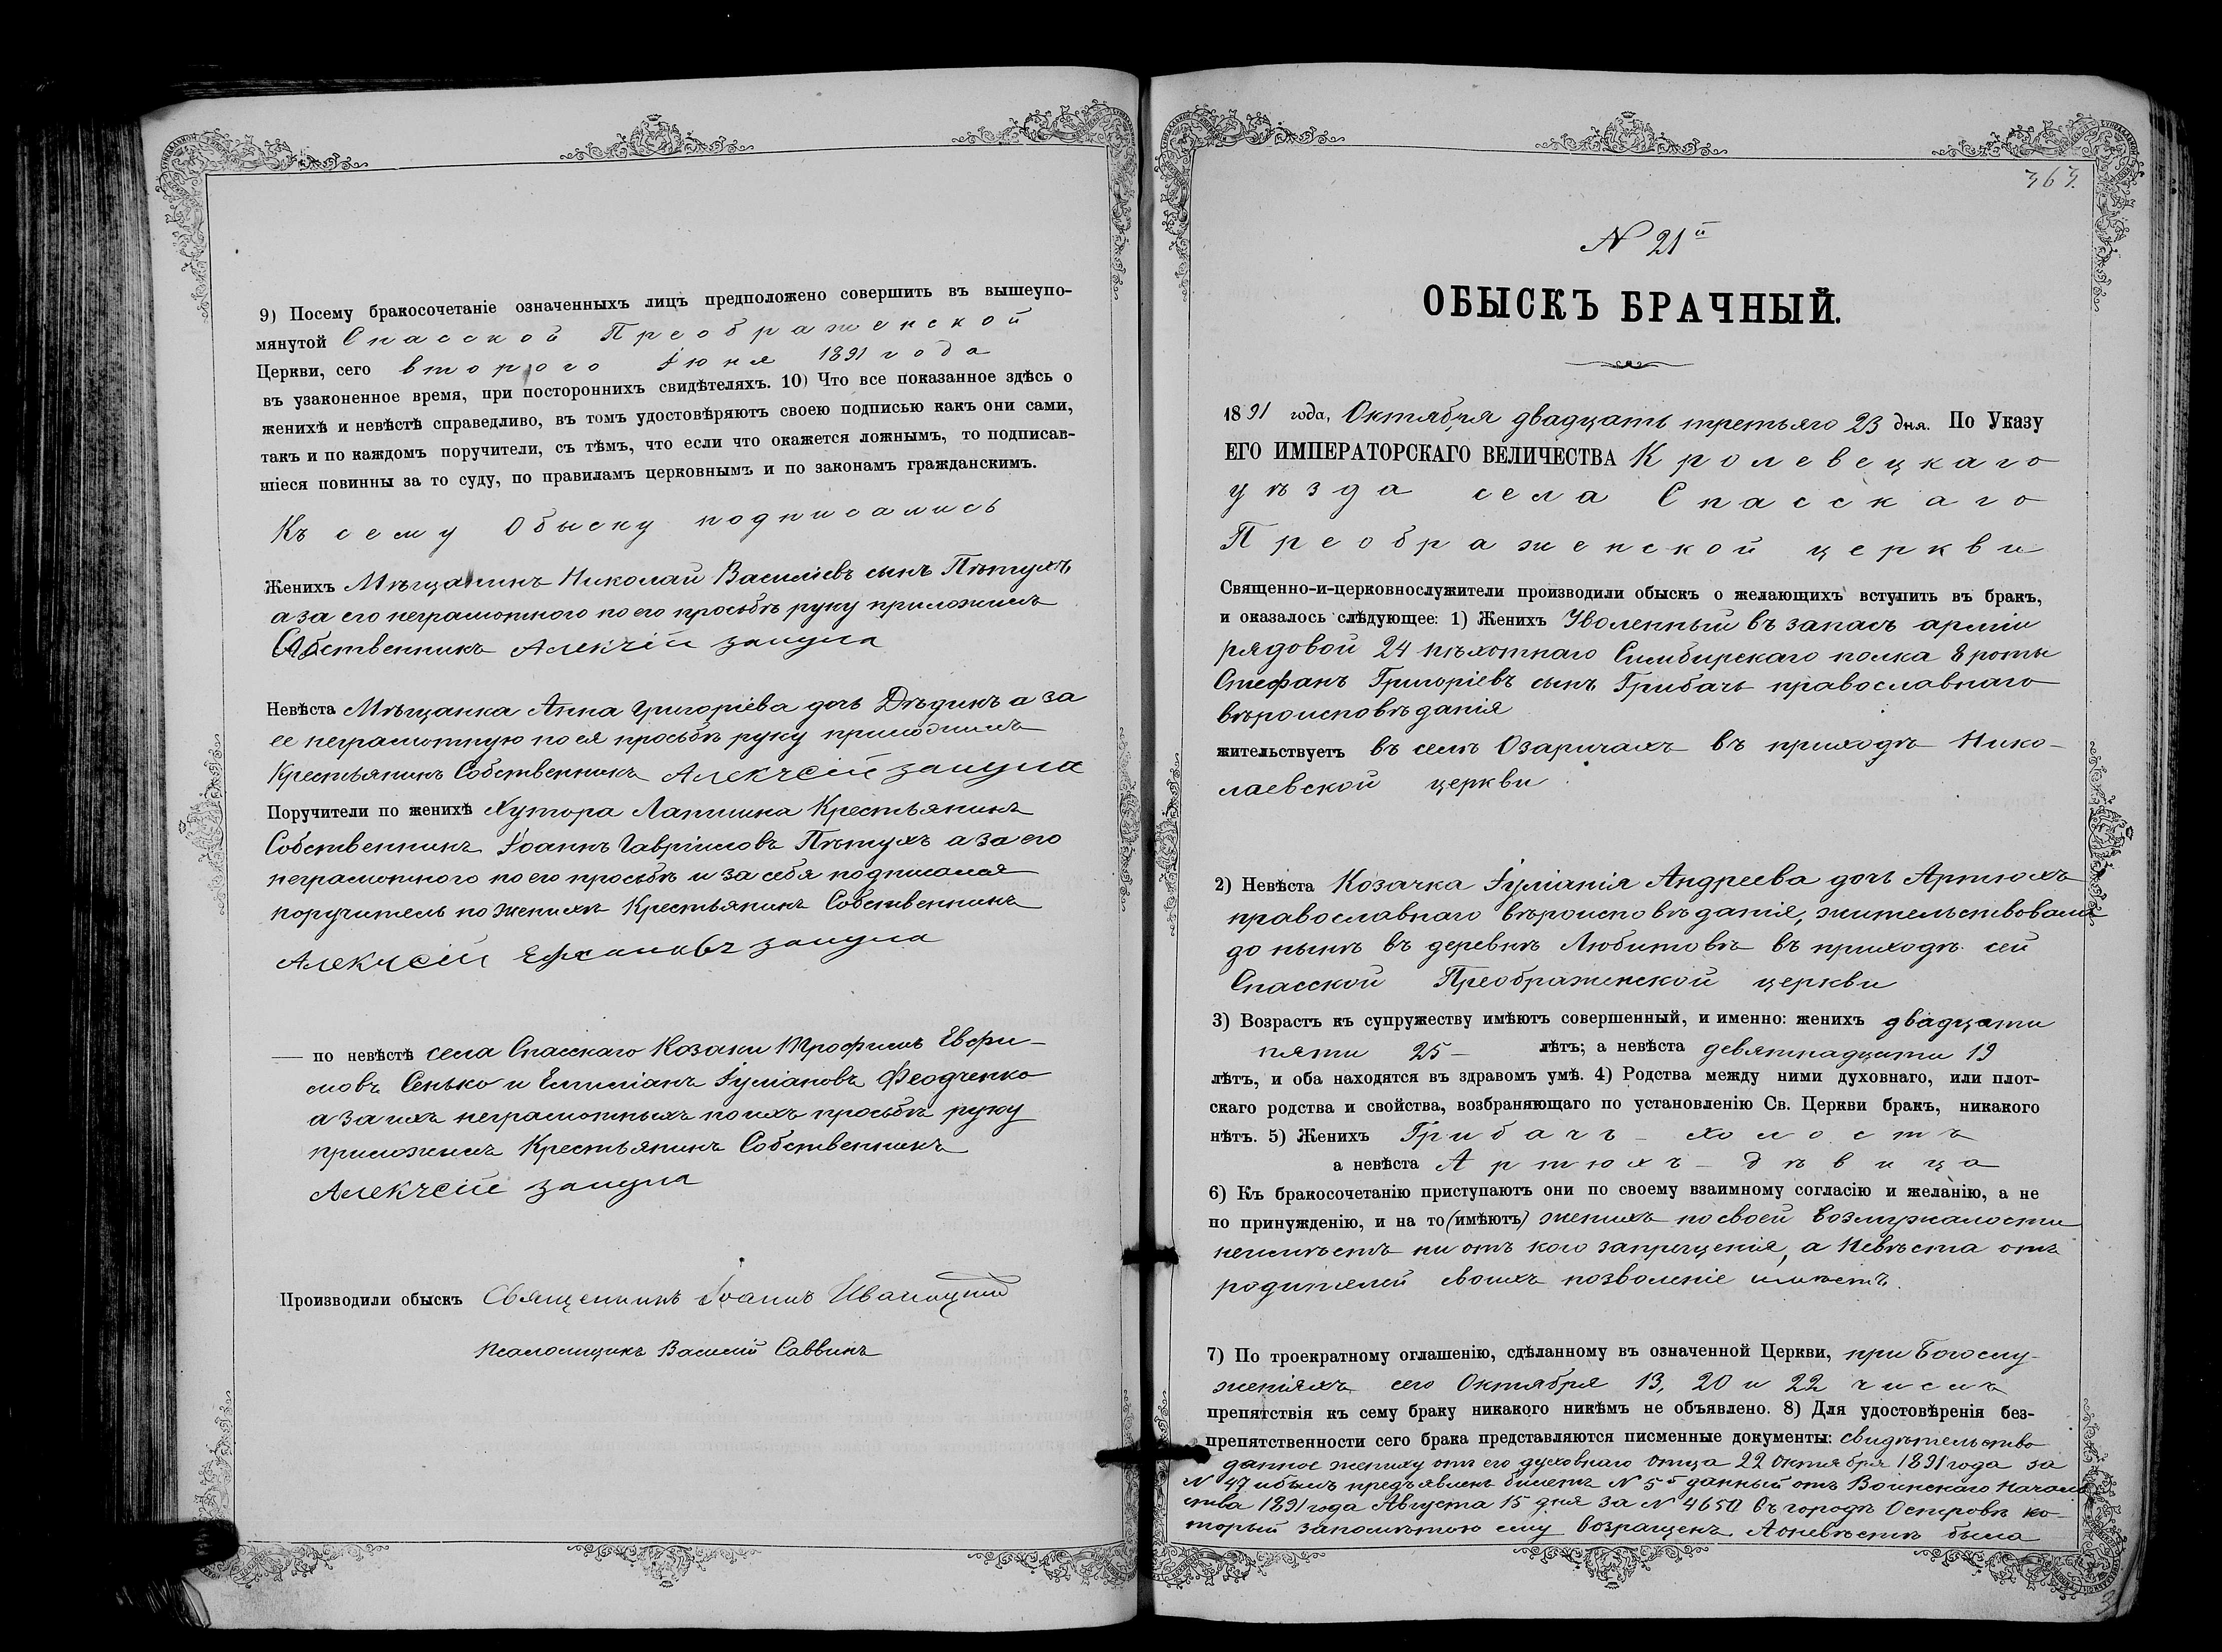 9) Посему бракосочетаніе означенныхъ лицъ предположено совершить въ вышеупо-
мянутой Спасской Преображенской
Церкви, сего второго Іюня 1891 года
въ узаконенное время, при постороннихъ свидѣтеляхъ. 10) Что все показанное здѣсь о
женихѣ и невѣстѣ справедливо, въ томъ удостовѣряютъ своею подписью какъ они сами,
такъ и по каждомъ поручители, съ тѣмъ, что если что окажется ложнымъ, то подписав-
шіеся повинны за то суду, по правиламъ церковнымъ и по законамъ гражданскимъ.
Къ сему Обыску подписались
Женихъ Мѣщанинъ Николай Василіевъ сынъ Пѣтухъ
а за его неграмотного по его просьбѣ руку приложилъ
Собственникъ Алексѣй
Невѣста Мѣщанка Анна Григоріева дочь Дѣдикъ а за
ее неграмотную по ея просьбѣ руку приложилъ
Крестьянинъ Собственникъ Алексѣй
Поручители по женихѣ Хутора Лапшина Крестьянинъ
Собственникъ Іоаннъ Гавріиловъ Пѣтухъ а за его
неграмотного по его просьбѣ и за себя подписался
поручитель по женихѣ Крестьянинъ Собственникъ
Алексѣй
— по невѣстѣ села Спасскаго Козаки Трофимъ Евфи-
мовъ Сенько и Емиліанъ Іуліановъ Феодченко
а за ихъ неграмотныхъ по ихъ просьбѣ руку
приложилъ Крестьянинъ Собственникъ
Алексѣй
Производили обыскъ Священникъ Іоаннъ Иваницкій
Псаломщикъ Василій Саввинъ
363.
N 21й
ОБЫСКЪ БРАЧНЫЙ.
1891 года, Октября двадцать третьяго 23 дня. По Указу
ЕГО ИМПЕРАТОРСКАГО ВЕЛИЧЕСТВА Кролевецкаго
уѣзда села Спасскаго
Преображенской церкви
Священно-и-церковнослужители производили обыскъ о желающихъ вступить въ бракъ,
и оказалось слѣдующее: 1) Женихъ Уволенный въ запасъ арміи
рядовой 24 пѣхотнаго Симбирскаго полка 8 роты
Стефанъ Григоріевъ сынъ Грибачъ православнаго
вѣроисповѣданія
жительствуетъ въ селѣ Озаричахъ въ приходѣ Нико-
лаевской церкви
2) Невѣста Козачка Іуліанія Андреева дочь Артюхъ
православнаго вѣроисповѣданія, жительствовала
до нынѣ въ деревнѣ Любитовѣ въ приходѣ сей
Спасской Преображенской церкви
3) Возрастъ къ супружеству имѣютъ совершенный, и именно: женихъ двадцати
пяти 25 – лѣтъ; а невѣста девятнадцати 19
лѣтъ, и оба находятся въ здравомъ умѣ. 4) Родства между ними духовнаго, или плот-
скаго родства и свойства, возбраняющаго по установленію Св. Церкви бракъ, никакого
нѣтъ. 5) Женихъ Грибачъ – холостъ
а невѣста Артюхъ – дѣвица
6) Къ бракосочетанію приступаютъ они по своему взаимному согласію и желанію, а не
по принужденію, и на то (имѣютъ) женихъ по своей возмужалости
неимѣетъ ни отъ кого запрещенія, а невѣста отъ
родителей своихъ позволеніе имѣетъ.
7) По троекратному оглашенію, сдѣланному въ означенной Церкви, при Богослу-
женіяхъ сего Октября 13, 20 и 22 числъ
препятствія къ сему браку никакого никѣмъ не объявлено. 8) Для удостовѣренія без-
препятственности сего брака представляются писменные документы: свидѣтельство
данное жениху отъ его духовнаго отца 22 октября 1891 года за
N 47 и былъ предъявленъ билетъ N 55 данный отъ Воинскаго Начал
ства 1891 года Августа 15 дня за N 4650 въ городѣ Островѣ ко-
торый ему возращенъ. А о невѣстѣ была